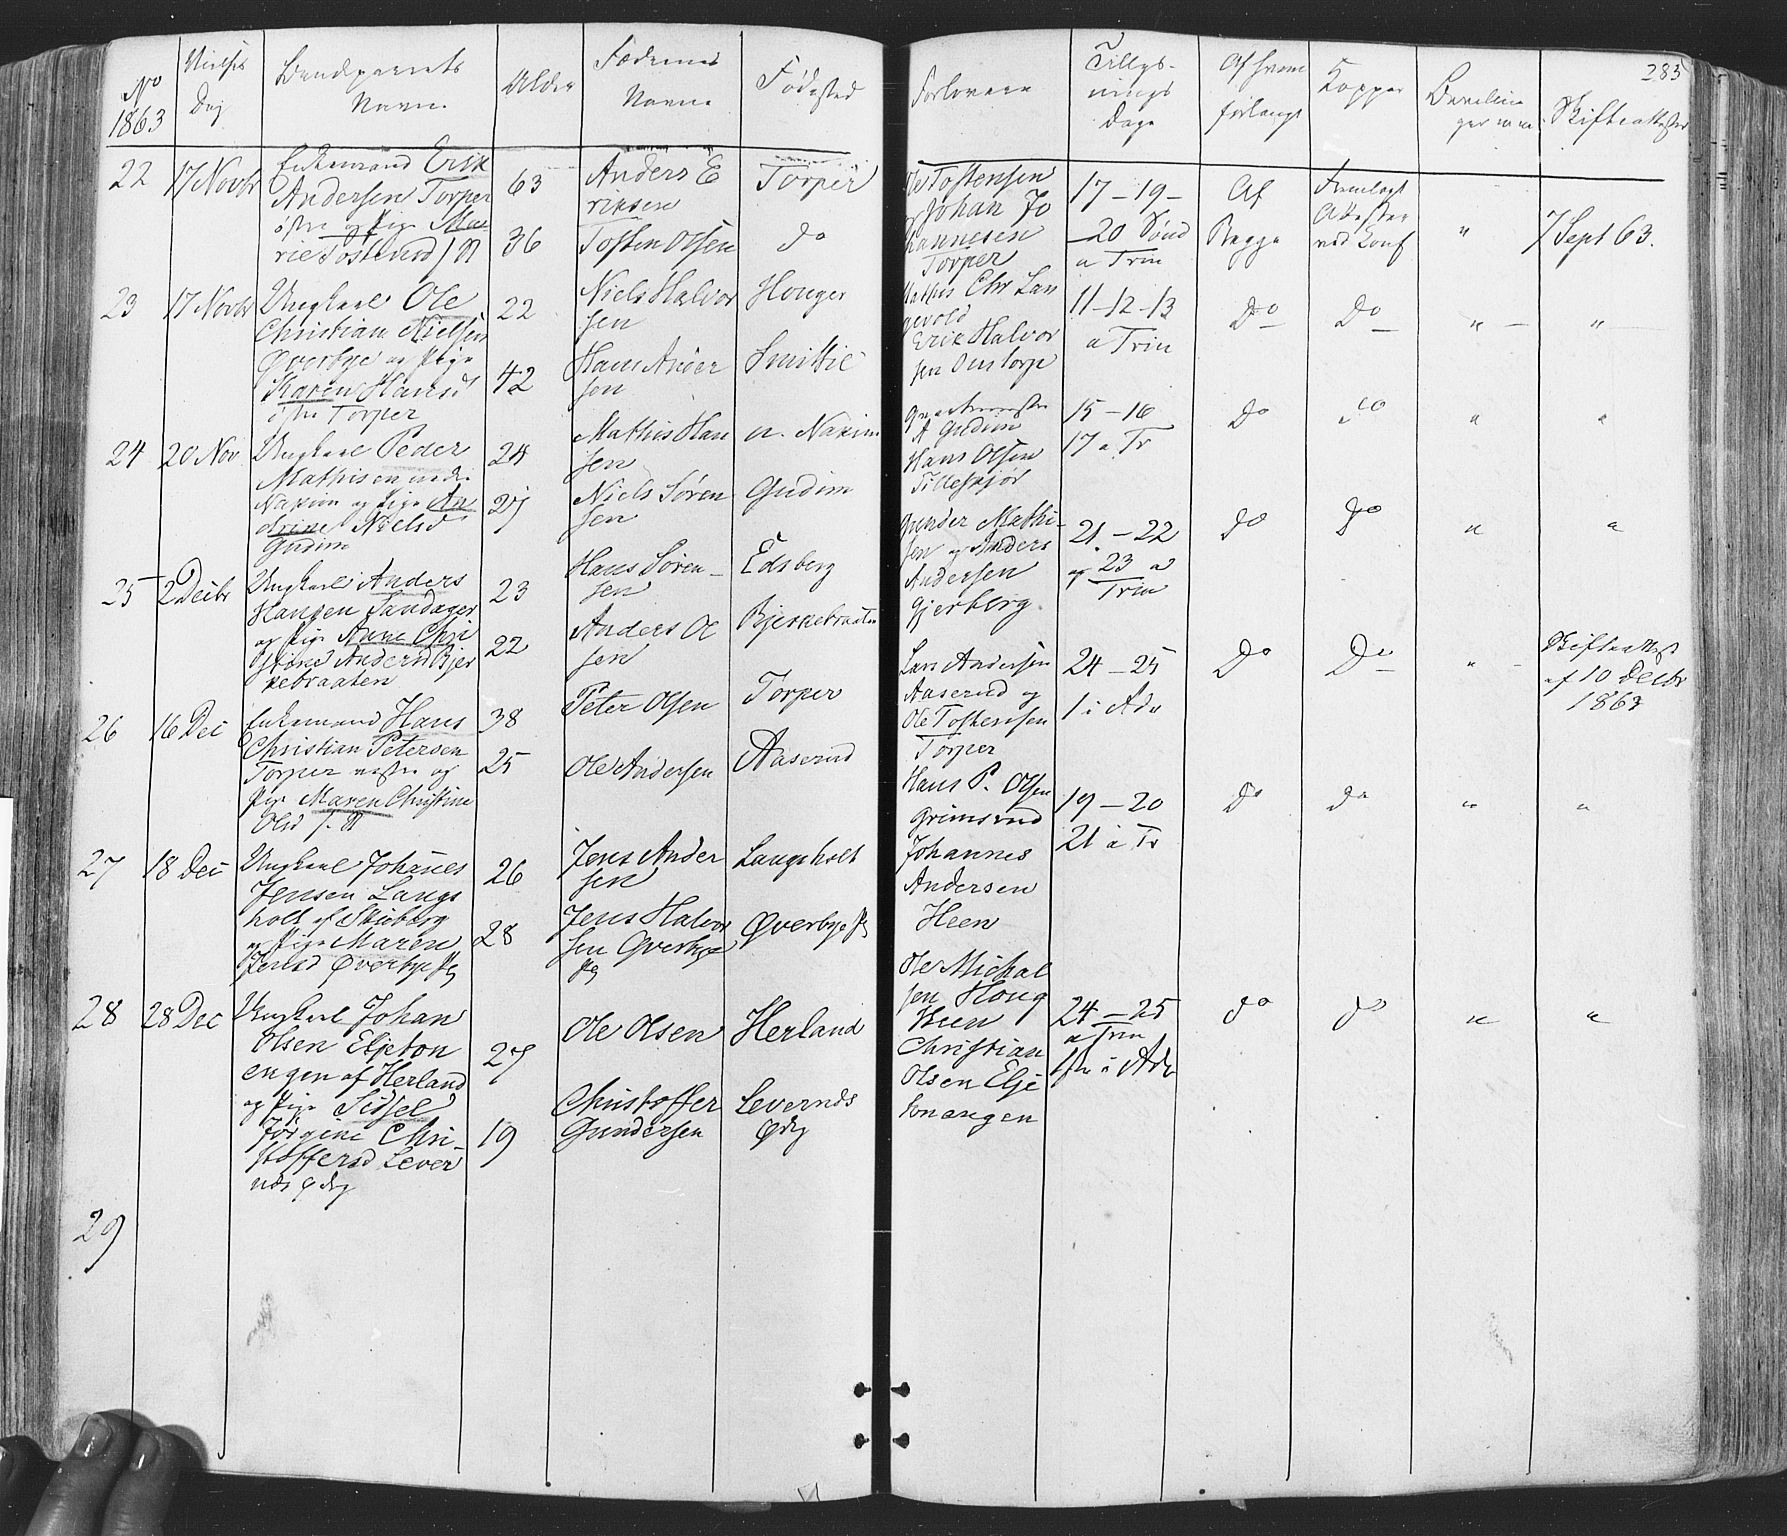 283
No
1863
Vielses
Dag
Brudeparrets
Navn
Alder
Fædrenes
Navne
Fødested
Forlovere
Tillys-
nings
Dage
Af hvem
forlangt
Kopper
Bevilin
ger m m
Skifteattester
22
17 Novbr
Enkemand Erik
Andersen Torper
østre og Pige Ma
rie Tostensd
63
36
Anders E
riksen
Tosten Olsen
Torper
do
Ole Tostensen
Johan Jo
hannesen
Torper
17-19-
20 Sønd
a Trin
Af
Begge
Fremlagt
Attester
ved Conf
"
7 Sept 63.
23
17 Novbr
Ungkarl Ole
Christian Nielsen
Øverbye og Pige
Karen Hansd
østre Torper
22
42
Niels Halvor
sen
Hans Ander
sen
Houger
Smittil
Mathis Chr Lan
gevold
Erik Halvor
sen Onstorp
11-12-13
a Trin
Do
Do
"
"
24
20 Nov
Ungkarl Peder
Mathisen nedr
Nakim og Pige An
drine Nielsd
Gudim
24
27
Mathis Han
sen
Niels Søren
sen
n. Nakim
Gudim
Gudim
Hans Olsen
Tilleskjør
15-16
17 a Tr
Do
do
"
"
25
2 Decbr
Ungkarl Anders
Hansen Sandager
og Pige Anne Chri
stine Andersd Bjer
kebraaten
23
22
Hans Søren-
sen
Anders Ol
sen
Edsberg
Bjerkebraaten
Gunder Mathi-
sen og Anders
Andersen
Gjerberg.
21-22
og 23 a
Trin
do
do
"
"
26
16 Dec
Enkemand Hans
Christian Petersen
Torper vestre og
Pige Maren Christine
Olsd
38
25
Peter Olsen
Ole Andersen
Torper
Aaserud
Lars Andersen
Aaserud og
Ole Tostensen
Torper
24-25
1 i Adv
Do
Do
"
Skifteattest
af 10 Decbr
1863
27
18 Dec
Ungkarl Johanes
Jensen Langs
holt af Skieberg
og Pige Maren
Jensd Øverbye Pg
26
28
Jens Ander
sen
Jens Halvor
sen Øverbye
Pg
Langsholt
Øverbye Pg
Hans P. Olsen
Grimsrud
Johannes
Andersen
Heen
19-20
21 a Tr
do
do
"
"
28
28 Dec
Ungkarl Johan
Olsen Eljeton
engen af Herland
og Pige Sissel
Jørgine Chri-
stoffersd Lever
næs Ødeg
27
19
Ole Olsen
Christoffer
Gundersen
Herland
Levernæs
Ødeg
Ole Michal
sen Houg
Christian
Olsen Elje
tonangen
24-25
a Trin
1ste i Adv
do
do
"
"
29